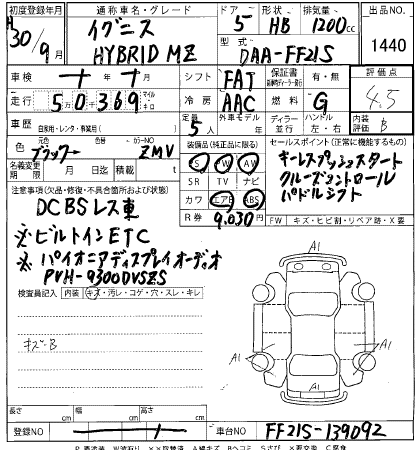 初度登録年月 通称車名・グレード ドア 形状 排気量 出品NO.
H30/9月 イグニス 5 HB 1200cc
HYBRID MZ 型式 DAA-FF21S 1440
車検 年 月 シフト FAT 保証書 有・無 評価点
走行 50369 マイル キロ 冷房 AAC 燃料 G 4.5
車歴 自家用・レンタ・事業用( ) 定員 5人 外車モデル年 ディーラー 並行 ハンドル 左・右 内装評価 B
色 元色 ブラック カラーNO ZMV 装備品(純正品に限る) セールスポイント(正常に機能するもの)
S PW AW キーレスプッシュスタート
名義変更期限 月 日 積載 t SR TV ナビ クルーズコントロール
注意事項(欠品・修復・不具合箇所および状態) カワ エアB ABS パドルシフト
DCBSレス車 R券 9,030円 FW キズ・ヒビ割・リペア跡・X要
※ビルトインETC
※パイオニアディスプレイオーディオ
PVH-9300DVSZS
検査員記入 内装 キズ・汚レ・コゲ・穴・スレ・キレ
キズ・B
A1
A1
A1
A1
長さ cm 幅 cm 高さ cm
登録NO 車台NO FF21S-139092